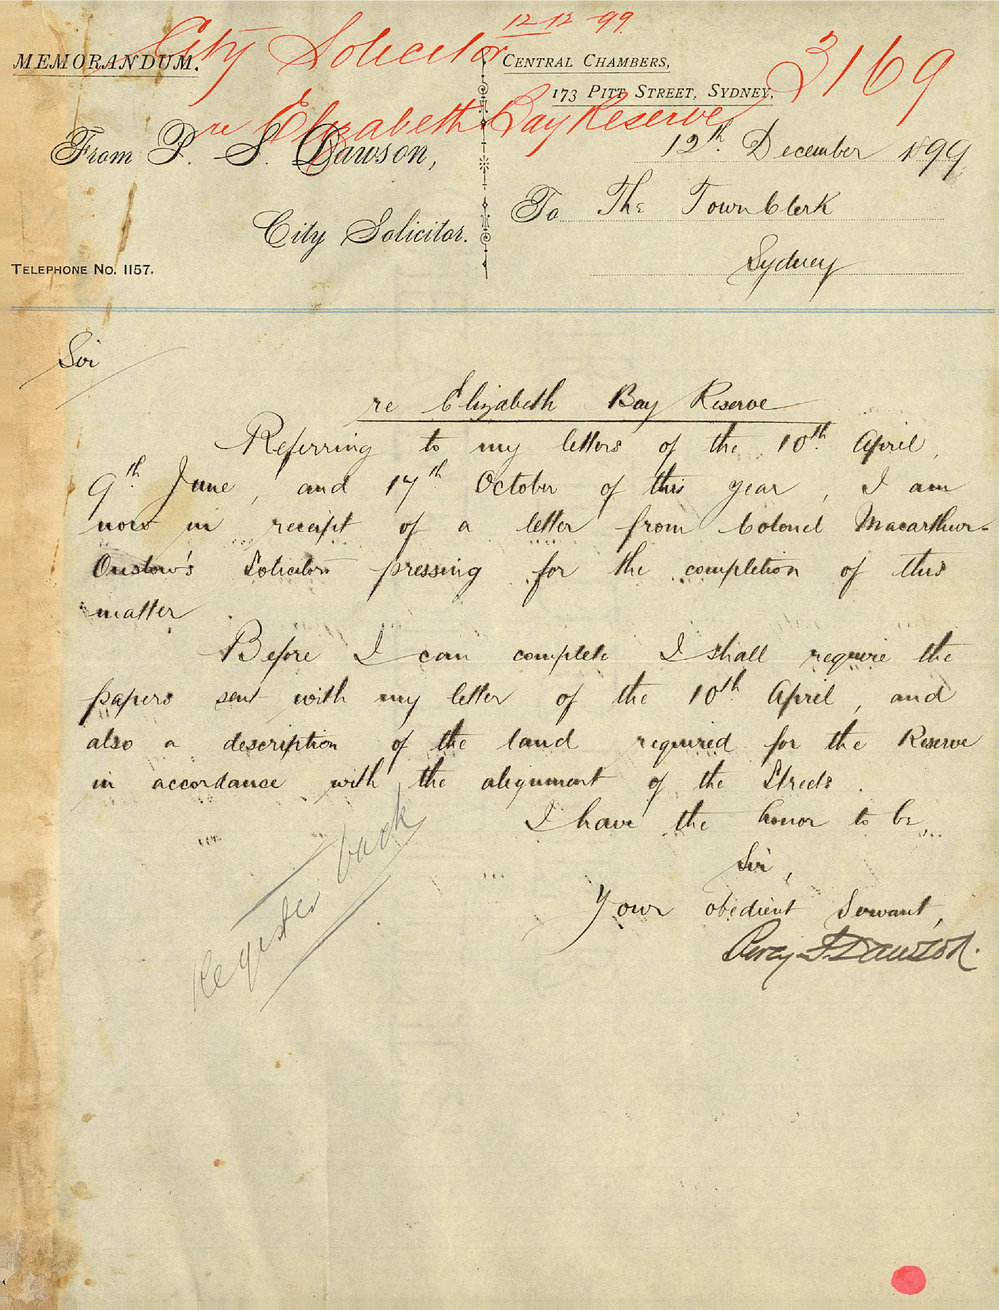 12-12-99
City Solicitor
3169
re Elizabeth Bay Reserve
MEMORANDUM.
From P. S. Dawson,
City Solicitor.
TELEPHONE NO. 1157.
CENTRAL CHAMBERS,
173 PITT STREET, SYDNEY,
12th. December 1899
To The Town Clerk
Sydney
Sir
re Elizabeth Bay Reserve
Referring to my letters of the 10th. April,
9th. June, and 17th. October of this year, I am
now in receipt of a letter from Colonel Macarthur-
Onslow's Solicitors pressing for the completion of this
matter.
Before I can complete I shall require the
papers sent with my letter of the 10th April, and
also a description of the land required for the Reserve
in accordance with the alignment of the Streets.
I have the honor to be
Sir,
Your obedient Servant,
Percy S Dawson.
Register back